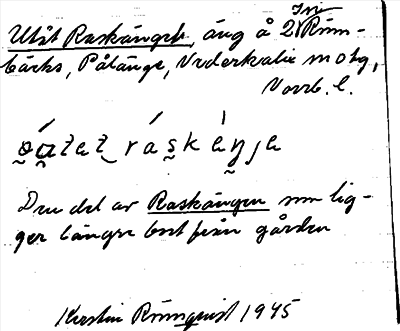 Utåt Raskänget, äng å 2 Rönn-
bäcks, Pålänge, Nederkalix m otg,
Norrb. l.
Den del av Raskängen som lig-
ger längre bort från gården
Kerstin Rönnqvist 1945